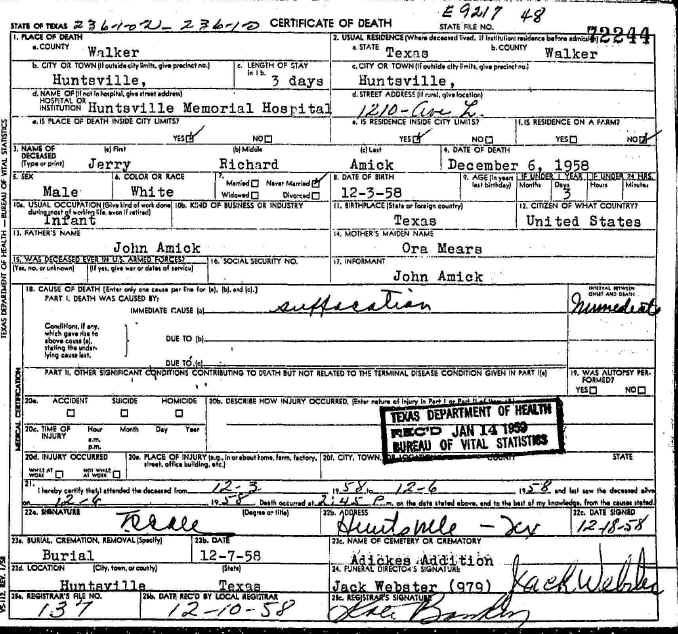 E 9217 48
STATE OF TEXAS 236-10 CERTIFICATE OF DEATH STATE FILE NO.
72244
1. PLACE OF DEATH
a. COUNTY Walker
2. USUAL RESIDENCE (Where deceased lived. If institution: residence before admission)
a. STATE Texas b. COUNTY Walker
b. CITY OR TOWN (If outside city limits, give precinct no.) Huntsville,
c. LENGTH OF STAY in 1b. 3 days
c. CITY OR TOWN (If outside city limits, give precinct no.) Huntsville,
d. NAME OF (If not in hospital, give street address) HOSPITAL OR INSTITUTION Huntsville Memorial Hospital
d. STREET ADDRESS (If rural, give location) 1210-Ave L.
e. IS PLACE OF DEATH INSIDE CITY LIMITS? YES NO
e. IS RESIDENCE INSIDE CITY LIMITS? YES NO
f. IS RESIDENCE ON A FARM? YES NO
3. NAME OF DECEASED (Type or print) (a) First Jerry (b) Middle Richard (c) Last Amick
4. DATE OF DEATH December 6, 1958
5. SEX Male
6. COLOR OR RACE White
7. Married Never Married Widowed Divorced
8. DATE OF BIRTH 12-3-58
9. AGE (In years last birthday) IF UNDER 1 YEAR Months Days 3 IF UNDER 24 HRS. Hours Minutes
10a. USUAL OCCUPATION (Give kind of work done during most of working life, even if retired) Infant
10b. KIND OF BUSINESS OR INDUSTRY
11. BIRTHPLACE (State or foreign country) Texas
12. CITIZEN OF WHAT COUNTRY? United States
13. FATHER'S NAME John Amick
14. MOTHER'S MAIDEN NAME Ora Mears
15. WAS DECEASED EVER IN U.S. ARMED FORCES? (Yes, no, or unknown) (If yes, give war or dates of service)
16. SOCIAL SECURITY NO.
17. INFORMANT John Amick
18. CAUSE OF DEATH [Enter only one cause per line for (a), (b), and (c).]
PART I. DEATH WAS CAUSED BY:
IMMEDIATE CAUSE (a) suffocation
INTERVAL BETWEEN ONSET AND DEATH Immediate
Conditions, if any, which gave rise to above cause (a), stating the underlying cause last.
DUE TO (b)
DUE TO (c)
PART II. OTHER SIGNIFICANT CONDITIONS CONTRIBUTING TO DEATH BUT NOT RELATED TO THE TERMINAL DISEASE CONDITION GIVEN IN PART I(a)
19. WAS AUTOPSY PERFORMED? YES NO
20a. ACCIDENT SUICIDE HOMICIDE
20b. DESCRIBE HOW INJURY OCCURRED. (Enter nature of injury in Part I or Part II of item 18.)
TEXAS DEPARTMENT OF HEALTH
REC'D JAN 14 1959
BUREAU OF VITAL STATISTICS
20c. TIME OF INJURY Hour a.m. p.m. Month Day Year
20d. INJURY OCCURRED WHILE AT WORK NOT WHILE AT WORK
20e. PLACE OF INJURY (e.g., in or about home, farm, factory, street, office building, etc.)
20f. CITY, TOWN, OR LOCATION COUNTY STATE
21. I hereby certify that I attended the deceased from 12-3 1958 to 12-6 1958 and last saw the deceased alive
on 12-6 1958 Death occurred at 2:45 P.m. on the date stated above, and to the best of my knowledge, from the causes stated.
22a. SIGNATURE (Degree or title)
22b. ADDRESS Huntsville - Tex
22c. DATE SIGNED 12-18-58
23a. BURIAL, CREMATION, REMOVAL (Specify) Burial
23b. DATE 12-7-58
23c. NAME OF CEMETERY OR CREMATORY Adickes Addition
23d. LOCATION (City, town, or county) (State) Huntsville Texas
24. FUNERAL DIRECTOR'S SIGNATURE Jack Webster (979) Jack Webster
25a. REGISTRAR'S FILE NO. 137
25b. DATE REC'D BY LOCAL REGISTRAR 12-10-58
25c. REGISTRAR'S SIGNATURE
TEXAS DEPARTMENT OF HEALTH — BUREAU OF VITAL STATISTICS
MEDICAL CERTIFICATION
VS-112, REV. 1/58